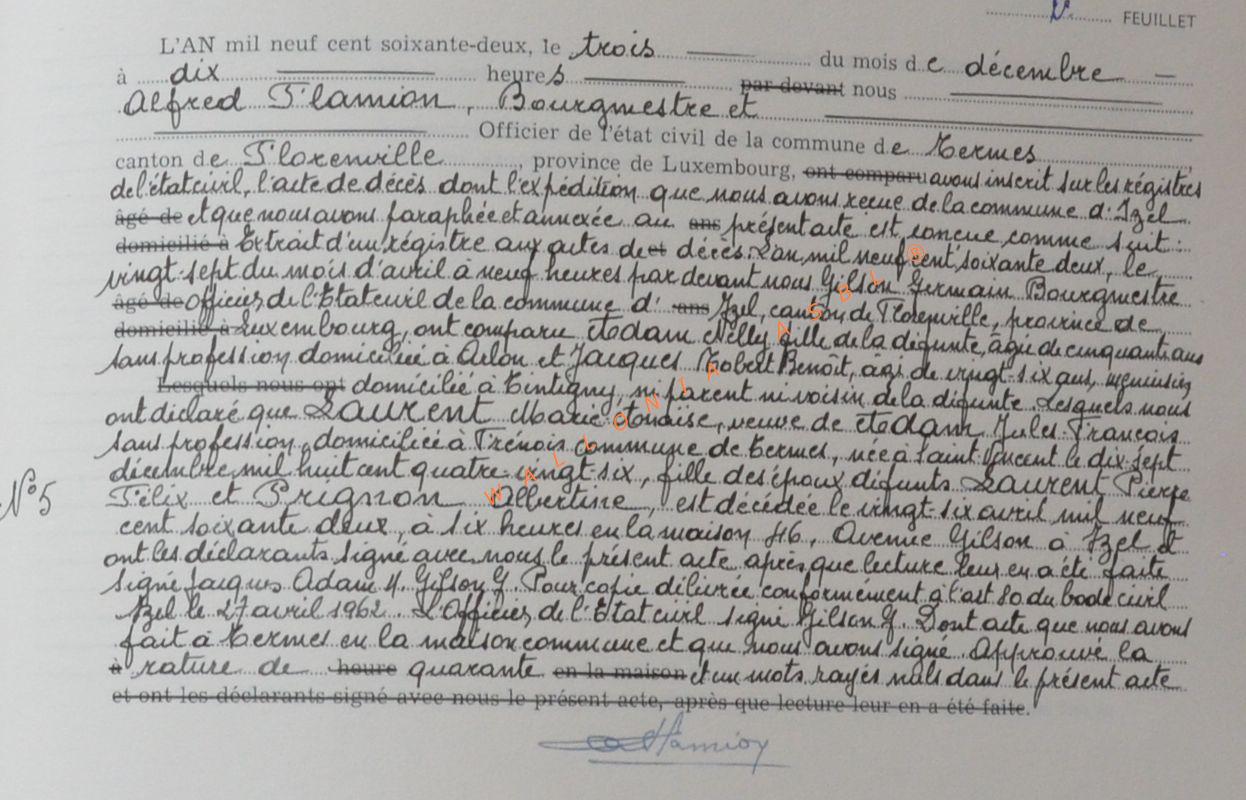 V FEUILLET
L'AN mil neuf cent soixante-deux, le trois du mois de décembre
à dix heures par devant nous
Alfred Flamion, Bourgmestre et
Officier de l'état civil de la commune de Termes
canton de Florenville, province de Luxembourg, ont comparu avons inscrit sur les régistres
de l'état civil, l'acte de décès dont l'expédition que nous avons reçue de la commune d'Izel
âgé de et que nous avons paraphée et annexée au ans présent acte est conçue comme suit :
domicilié à Extrait d'un régistre aux actes de et décès. L'an mil neuf cent soixante deux, le
vingt-sept du mois d'avril à neuf heures par devant nous Gilson Germain Bourgmestre
âgé de Officier de l'Etat civil de la commune d' ans Izel, canton de Florenville, province de
domicilié à Luxembourg, ont comparu Adam Nelly fille de la défunte, âgée de cinquante ans
sans profession domiciliée à Arlon et Jacques Robert Benoît, âgé de vingt six ans, menuisier
Lesquels nous ont domicilié à Tintigny, ni parent ni voisin de la défunte. Lesquels nous
ont déclaré que Laurent Marie, veuve de Adam Jules François
sans profession, domiciliée à Frenois commune de Termes, née à Saint Vincent le dix-sept
décembre mil huit cent quatre-vingt-six, fille des époux défunts Laurent Pierre
N° 5
Félix et Prignon Albertine, est décédée le vingt-six avril mil neuf
cent soixante deux, à six heures en la maison 46, Avenue Gilson à Izel et
ont les déclarants signé avec nous le présent acte après que lecture leur en a été faite
signé Jacques Adam N. Gilson G. Pour copie délivrée conformément à l'art 80 du Code civil
Izel le 27 avril 1962. L'Officier de l'Etat civil signé Gilson G. Dont acte que nous avons
fait à Termes en la maison commune et que nous avons signé. Approuvé la
à rature de heure quarante en la maison et un mots rayés nuls dans le présent acte
et ont les déclarants signé avec nous le présent acte, après que lecture leur en a été faite.
Flamion
WALLONIA ASBL ®